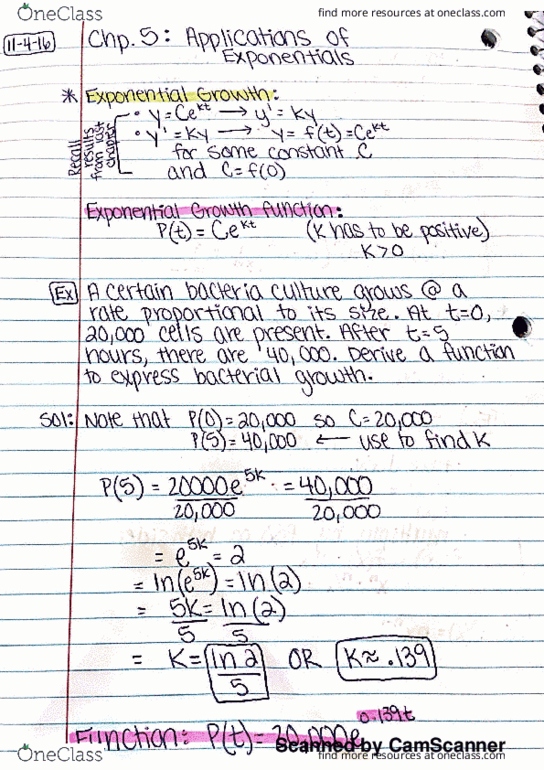 OneClass
find more resources at oneclass.com
11-4-16
Chp. 5: Applications of
Exponentials
* Exponential Growth:
Recall results from last chapter
• y=Ce^kt → y' = Ky
• y' = Ky → y = f(t) = Ce^kt
for some constant C
and C=f(0)
Exponential Growth function:
P(t) = Ce^kt (K has to be positive)
K>0
Ex A certain bacteria culture grows @ a
rate proportional to its size. At t=0,
20,000 cells are present. After t=5
hours, there are 40,000. Derive a function
to express bacterial growth.
Sol: Note that P(0)=20,000 so C=20,000
P(5)=40,000 ← use to find K
P(5) = 20000e^5k = 40,000
20,000 20,000
= e^5k = 2
= ln(e^5k) = ln(2)
= 5K = ln(2)
5 5
= K = ln 2 OR K≈ .139
5
0.139t
Function: P(t) = 20,000e
Scanned by CamScanner
OneClass
find more resources at oneclass.com